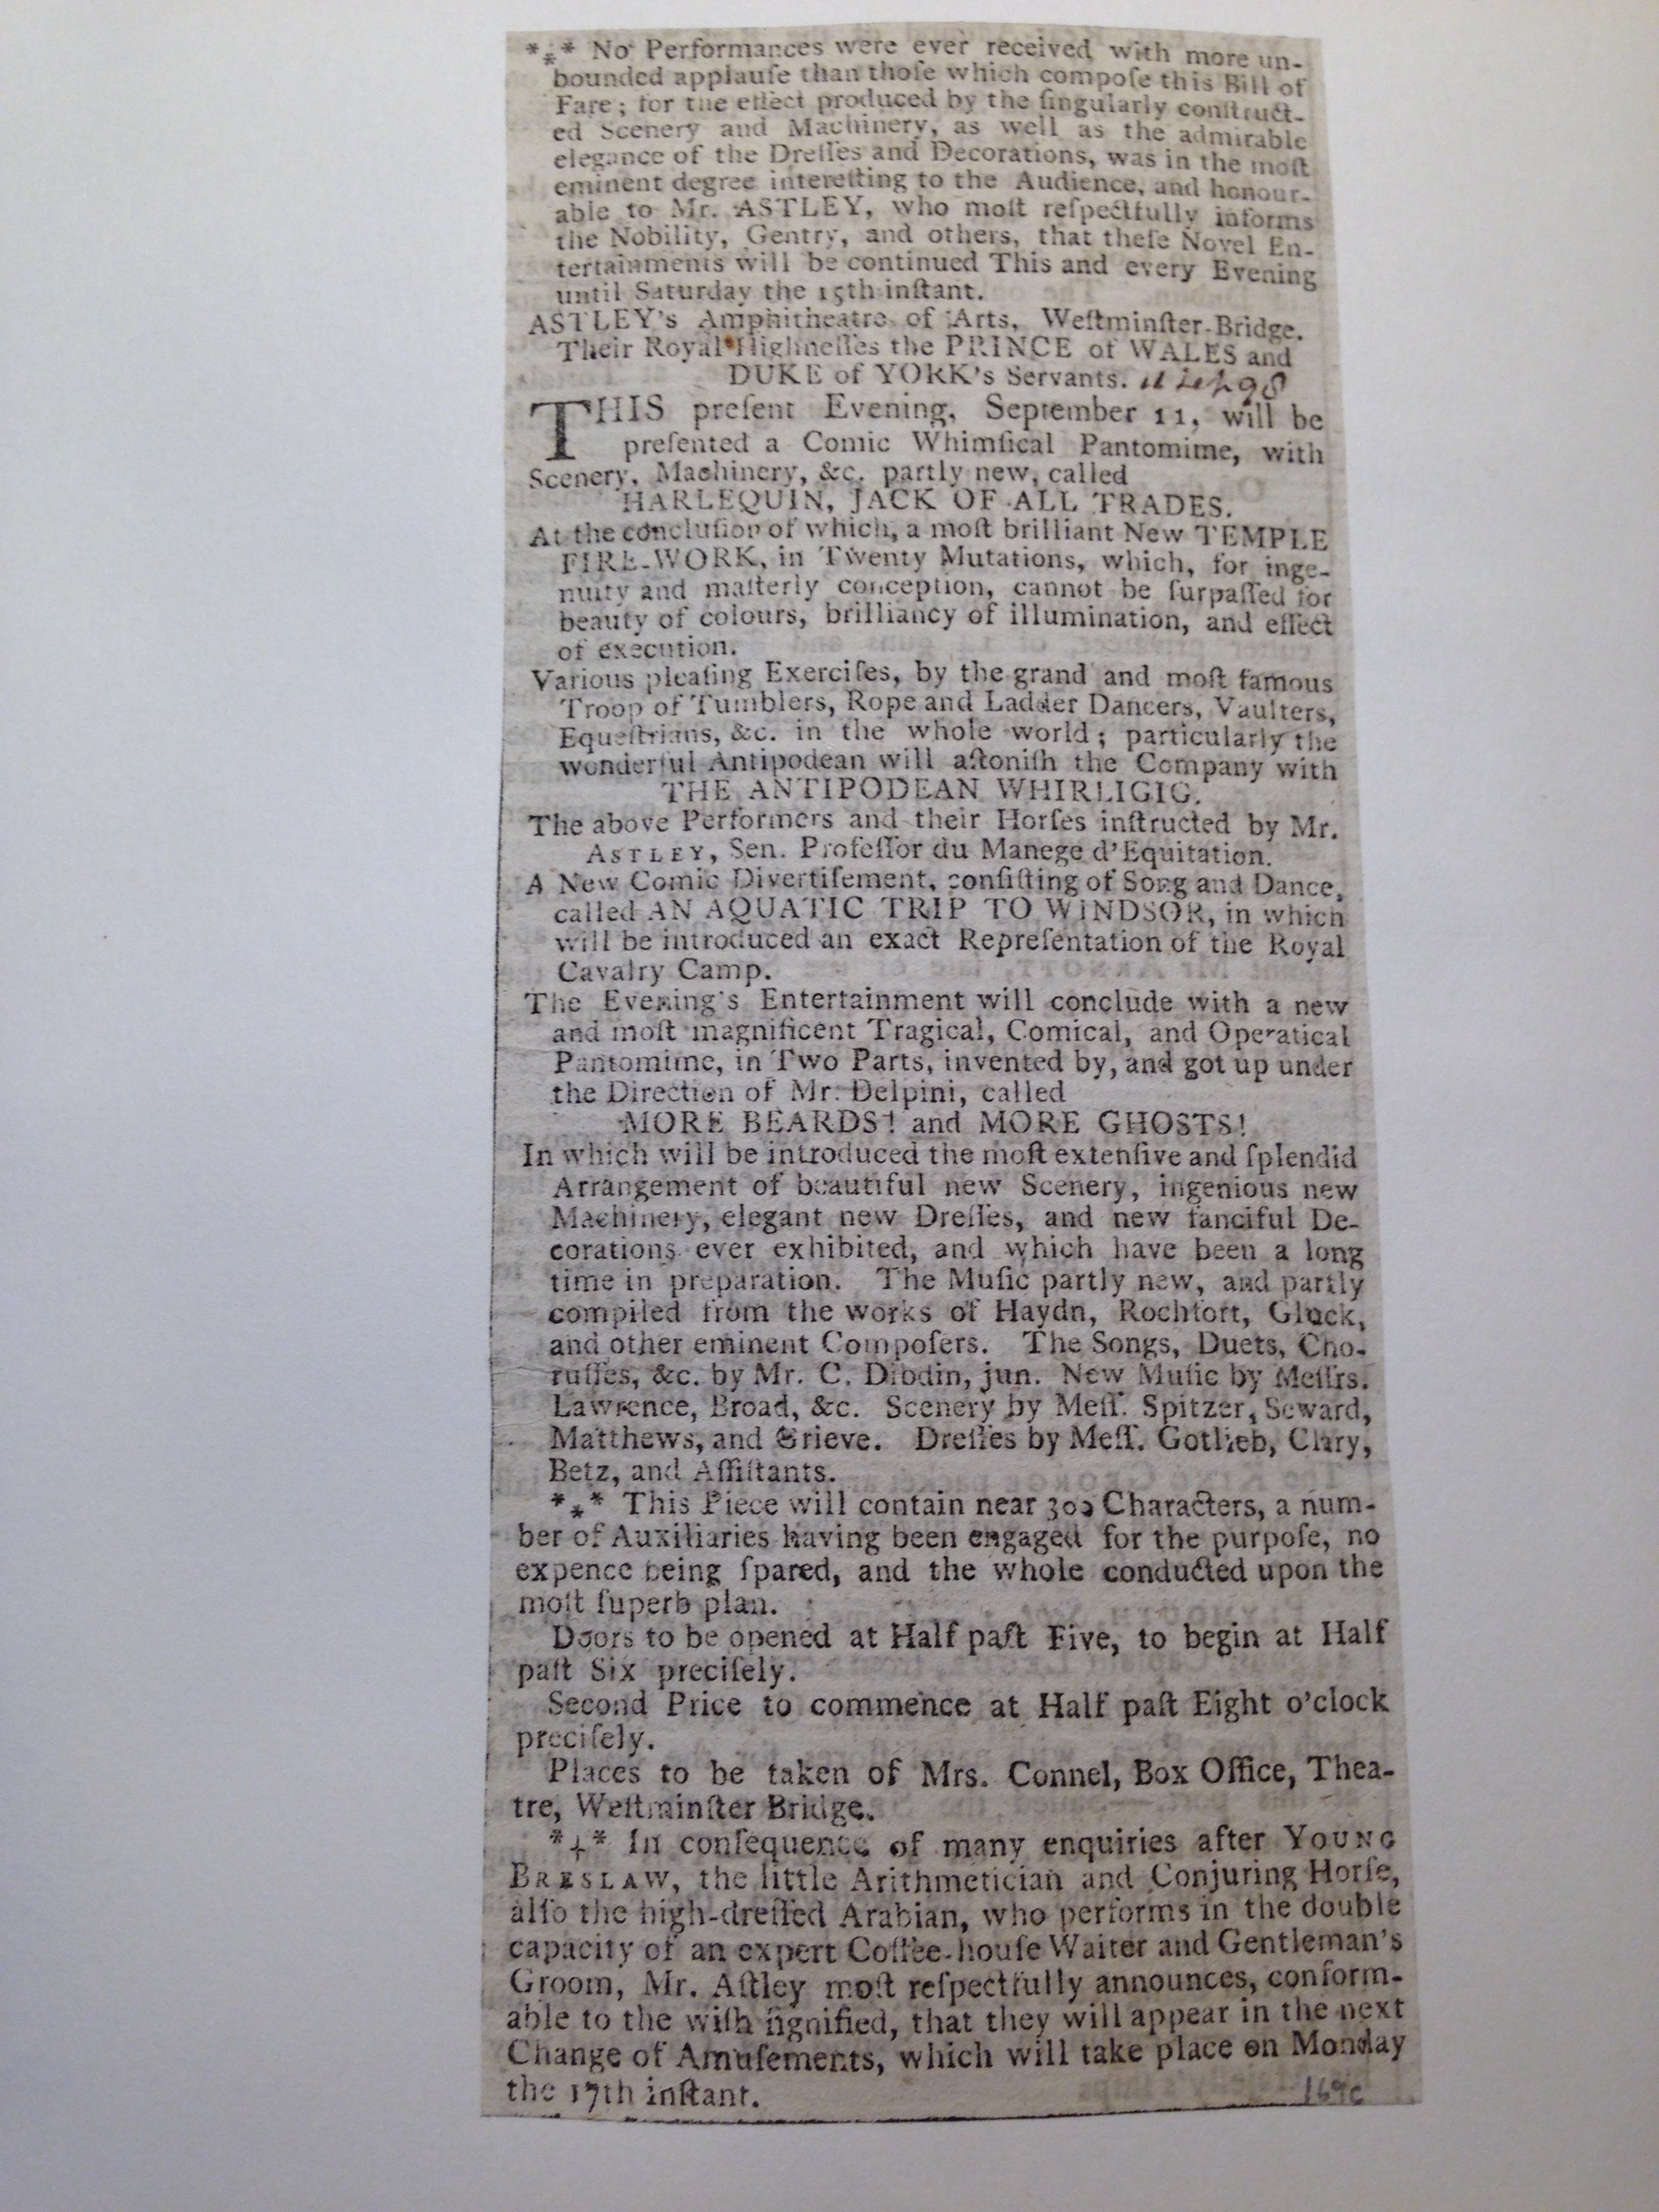 *⁎* No Performances were ever received with more un-
bounded applauſe than thoſe which compoſe this Bill of
Fare; for the effect produced by the ſingularly conſtruct-
ed Scenery and Machinery, as well as the admirable
elegance of the Dreſſes and Decorations, was in the moſt
eminent degree intereſting to the Audience, and honour-
able to Mr. ASTLEY, who moſt reſpectfully informs
the Nobility, Gentry, and others, that theſe Novel En-
tertainments will be continued This and every Evening
until Saturday the 15th inſtant.
ASTLEY's Amphitheatre of Arts, Weſtminſter-Bridge.
Their Royal Highneſſes the PRINCE of WALES and
DUKE of YORK's Servants. 11 Sep 98
THIS preſent Evening, September 11, will be
preſented a Comic Whimſical Pantomime, with
Scenery, Machinery, &c. partly new, called
HARLEQUIN, JACK OF ALL TRADES.
At the concluſion of which, a moſt brilliant New TEMPLE
FIRE-WORK, in Twenty Mutations, which, for inge-
nuity and maſterly conception, cannot be ſurpaſſed for
beauty of colours, brilliancy of illumination, and effect
of execution.
Various pleaſing Exerciſes, by the grand and moſt famous
Troop of Tumblers, Rope and Ladder Dancers, Vaulters,
Equeſtrians, &c. in the whole world; particularly the
wonderful Antipodean will aſtoniſh the Company with
THE ANTIPODEAN WHIRLIGIG.
The above Performers and their Horſes inſtructed by Mr.
ASTLEY, Sen. Profeſſor du Manege d'Equitation.
A New Comic Divertiſement, conſiſting of Song and Dance,
called AN AQUATIC TRIP TO WINDSOR, in which
will be introduced an exact Repreſentation of the Royal
Cavalry Camp.
The Evening's Entertainment will conclude with a new
and moſt magnificent Tragical, Comical, and Operatical
Pantomime, in Two Parts, invented by, and got up under
the Direction of Mr. Delpini, called
MORE BEARDS! and MORE GHOSTS!
In which will be introduced the moſt extenſive and ſplendid
Arrangement of beautiful new Scenery, ingenious new
Machinery, elegant new Dreſſes, and new fanciful De-
corations ever exhibited, and which have been a long
time in preparation. The Muſic partly new, and partly
compiled from the works of Haydn, Rochfort, Gluck,
and other eminent Compoſers. The Songs, Duets, Cho-
ruſſes, &c. by Mr. C. Dibdin, jun. New Muſic by Meſſrs.
Lawrence, Broad, &c. Scenery by Meſſ. Spitzer, Seward,
Matthews, and Grieve. Dreſſes by Meſſ. Gotlieb, Clary,
Betz, and Aſſiſtants.
*⁎* This Piece will contain near 300 Characters, a num-
ber of Auxiliaries having been engaged for the purpoſe, no
expence being ſpared, and the whole conducted upon the
moſt ſuperb plan.
Doors to be opened at Half paſt Five, to begin at Half
paſt Six preciſely.
Second Price to commence at Half paſt Eight o'clock
preciſely.
Places to be taken of Mrs. Connel, Box Office, Thea-
tre, Weſtminſter Bridge.
*+* In conſequence of many enquiries after YOUNG
BRESLAW, the little Arithmetician and Conjuring Horſe,
alſo the high-dreſſed Arabian, who performs in the double
capacity of an expert Coffee-houſe Waiter and Gentleman's
Groom, Mr. Aſtley moſt reſpectfully announces, conform-
able to the wiſh ſignified, that they will appear in the next
Change of Amuſements, which will take place on Monday
the 17th inſtant.